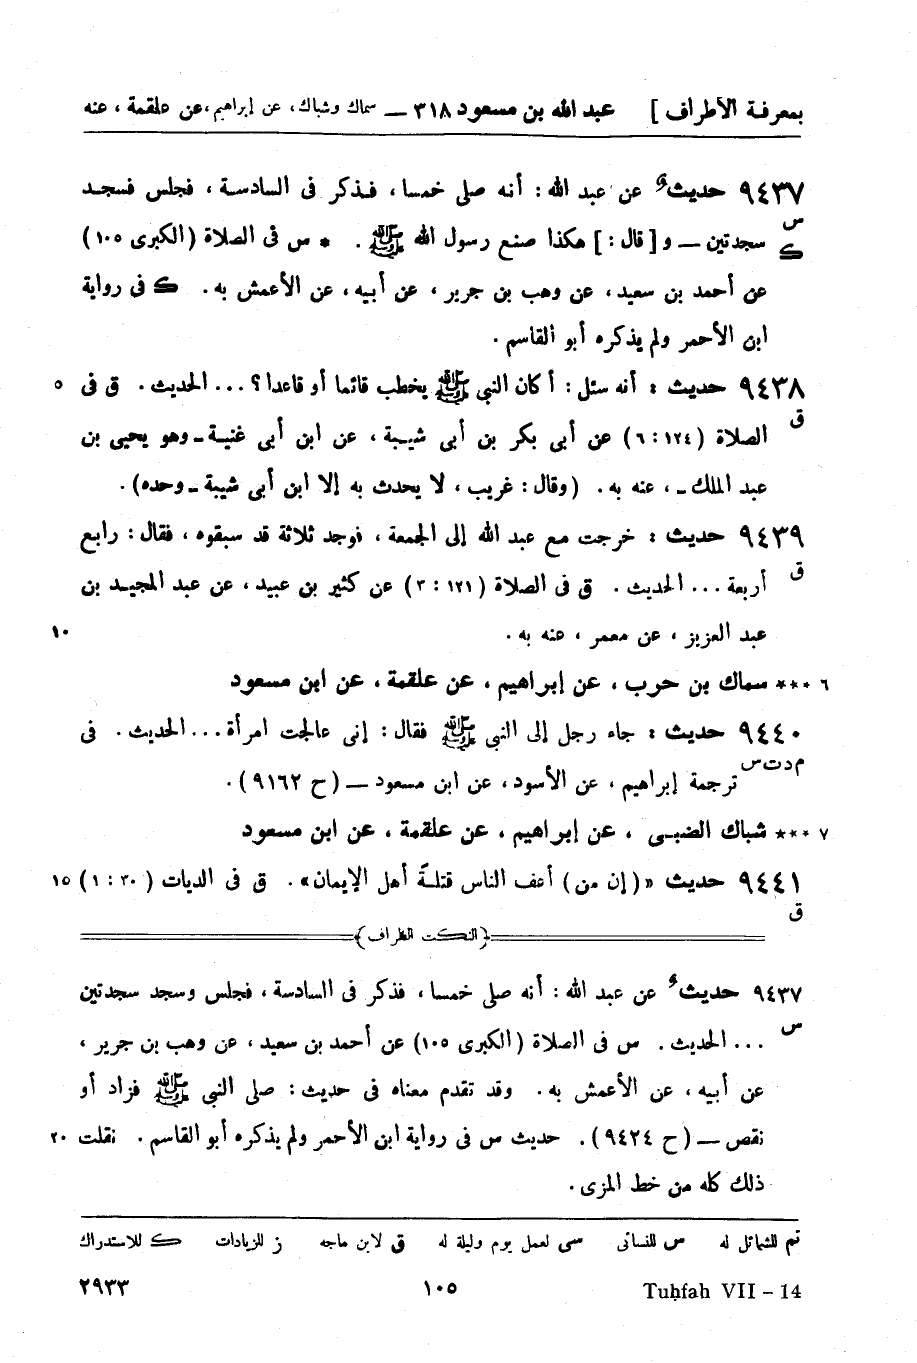 بمعرفة الأطراف ] عبد الله بن مسعود ٣١٨ — سماك وشباك، عن إبراهيم، عن علقمة، عنه
٩٤٣٧ حديثٌ عن عبد الله : أنه صلى خمسا، فـذكر فى السادسة، فجلس فسجد
س
ك سجدتين — و [ قال : ] هكذا صنع رسول الله ﷺ . * س فى الصلاة (الكبرى ١٠٥)
عن أحمد بن سعيد، عن وهب بن جرير، عن أبيه، عن الأعمش به. ك فى رواية
ابن الأحمر ولم يذكره أبو القاسم.
٩٤٣٨ حديث : أنه سئل : أكان النبي ﷺ يخطب قائما أو قاعدا ؟ ... الحديث. ق فى ٥
ق
الصلاة (١٢٤ : ٦) عن أبى بكر بن أبى شيبة، عن ابن أبى غنية ـ وهو يحيى بن
عبد الملك ـ، عنه به. (وقال : غريب، لا يحدث به إلا ابن أبى شيبة ـ وحده).
٩٤٣٩ حديث : خرجت مع عبد الله إلى الجمعة، فوجد ثلاثة قد سبقوه، فقال : رابع
ق
أربعة ... الحديث. ق فى الصلاة (١٢١ : ٣) عن كثير بن عبيد، عن عبد المجيد بن
عبد العزيز، عن معمر، عنه به. ١٠
٦ *** سماك بن حرب، عن إبراهيم، عن علقمة، عن ابن مسعود
٩٤٤٠ حديث : جاء رجل إلى النبي ﷺ فقال : إنى عالجت امرأة ... الحديث. فى
م د ت س
ترجمة إبراهيم، عن الأسود، عن ابن مسعود — (ح ٩١٦٢).
٧ *** شباك الضبـى، عن إبراهيم، عن علقمة، عن ابن مسعود
٩٤٤١ حديث «(إن من) أعف الناس قتلـةً أهل الإيمان». ق فى الديات (٣٠ : ١) ١٥
ق
(النكت الظراف)
٩٤٣٧ حديثٌ عن عبد الله : أنه صلى خمسا، فذكر فى السادسة، فجلس وسجد سجدتين
س
... الحديث. س فى الصلاة (الكبرى ١٠٥) عن أحمد بن سعيد، عن وهب بن جرير،
عن أبيه، عن الأعمش به. وقد تقدم معناه فى حديث : صلى النبي ﷺ فزاد أو
نقص — (ح ٩٤٢٤). حديث س فى رواية ابن الأحمر ولم يذكره أبو القاسم. نقلت ٢٠
ذلك كله من خط المزى.
تم للشمائل له س للنسائى سى لعمل يوم وليلة له ق لابن ماجه ز للزيادات ك للاستدراك
Tuḥfah VII – 14 ١٠٥ ٢٩٣٣